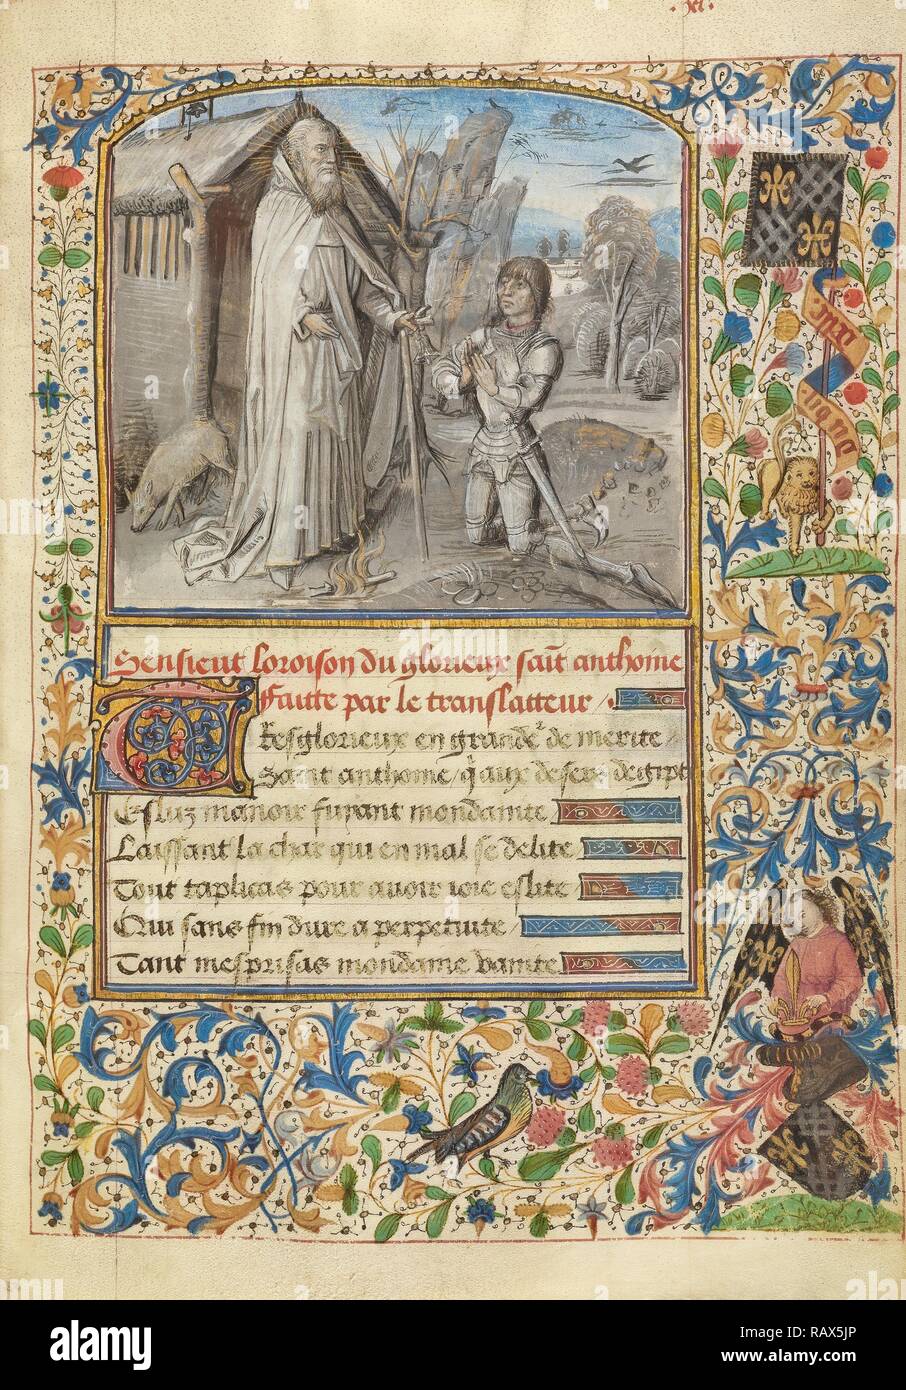 .xl.
Sensieut loroison du glorieux sait anthoine
Faitte par le translatteur
Tresglorieux en grande de merite
Saint anthoine / q aux desers degipt
Esluz manoir fuyant mondainite
Laissant la char qui en mal se delite
Tout taplicas pour auoir ioie eslite
Qui sans fin dure a perpetuite
Tant mesprisas mondaine vanite
alamy
Image ID: RAX5JP
www.alamy.com